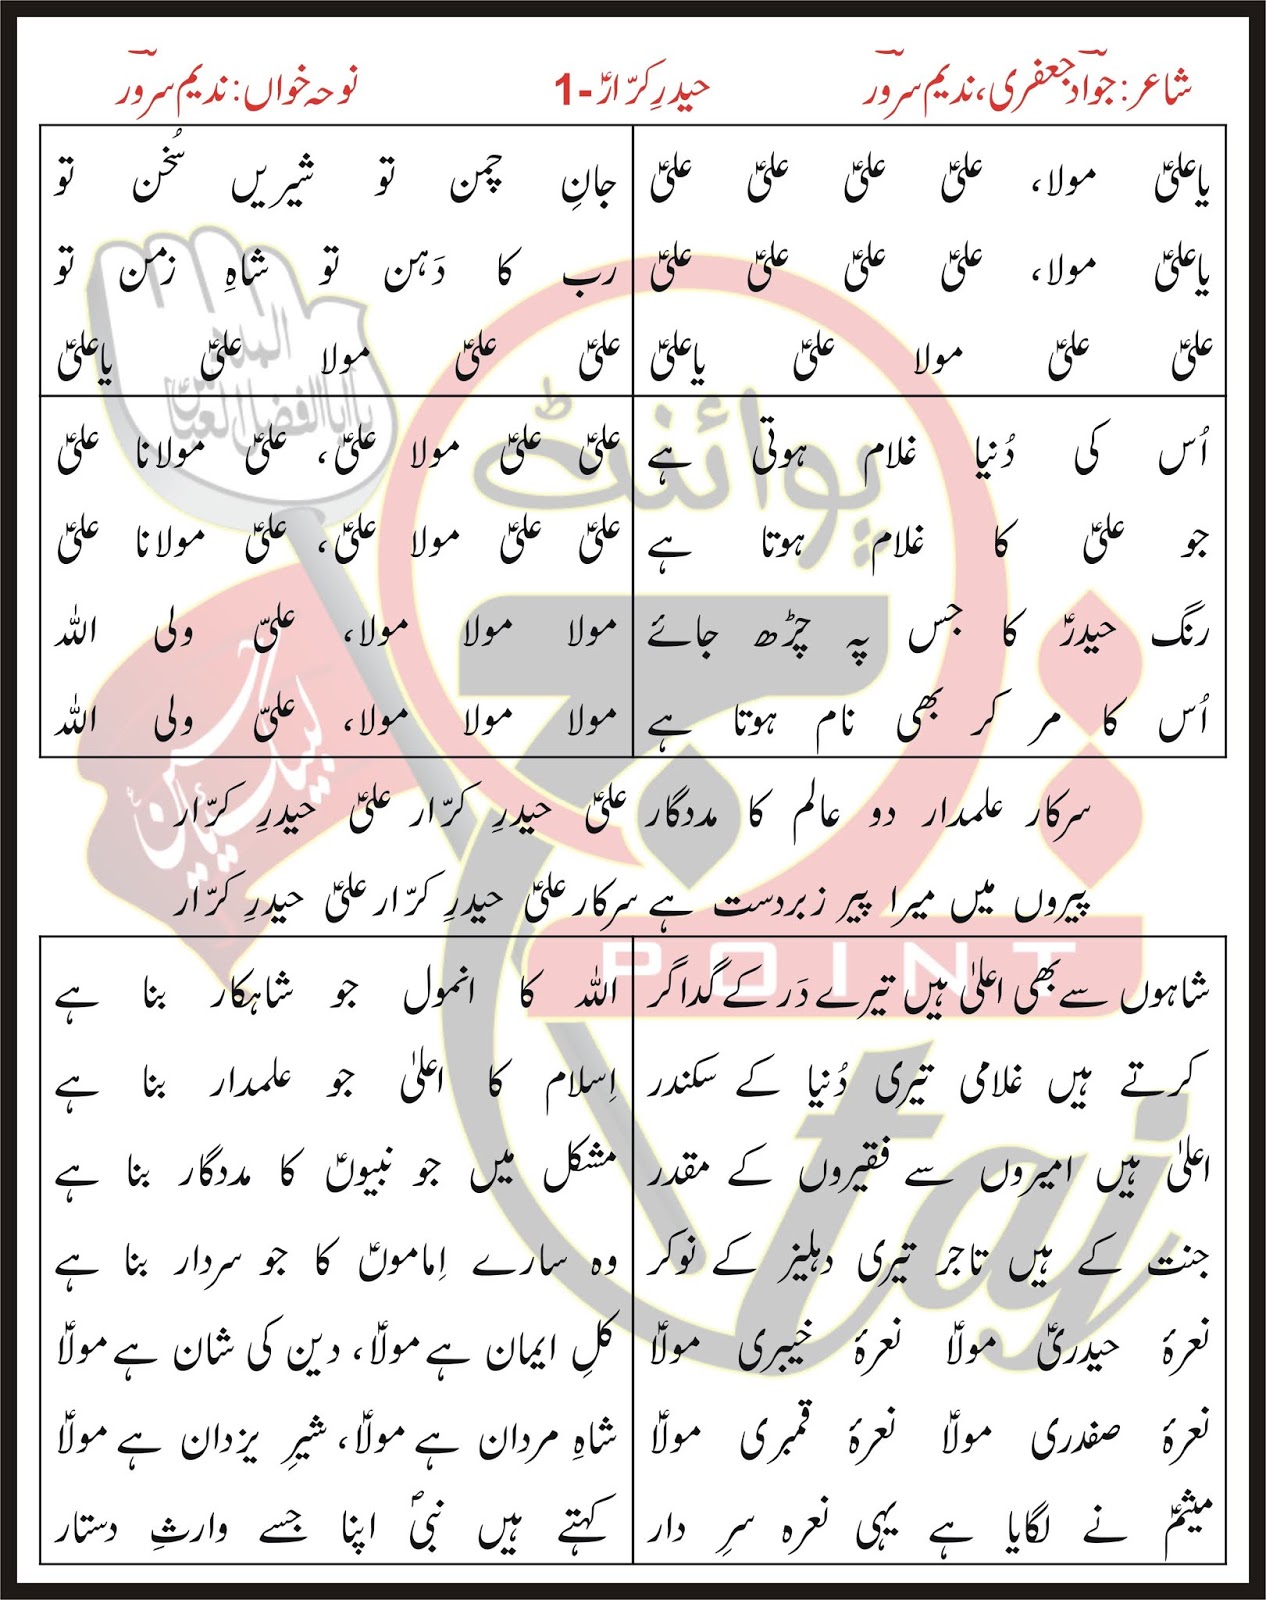 شاعر: جوادؔ جعفری، ندیم سرورؔ
حیدرِ کرّارؑ -1
نوحہ خواں: ندیم سرورؔ
یاعلیؑ مولا، علیؑ علیؑ علیؑ علیؑ
یاعلیؑ مولا، علیؑ علیؑ علیؑ علیؑ
علیؑ علیؑ مولا علیؑ یاعلیؑ
جانِ چمن تو شیریں سُخن تو
رب کا دَہن تو شاہِ زمن تو
علیؑ علیؑ مولا علیؑ یاعلیؑ
اُس کی دُنیا غلام ہوتی ہے
جو علیؑ کا غلام ہوتا ہے
رنگ حیدرؑ کا جس پہ چڑھ جائے
اُس کا مر کر بھی نام ہوتا ہے
علیؑ علیؑ مولا علیؑ، علیؑ مولانا علیؑ
علیؑ علیؑ مولا علیؑ، علیؑ مولانا علیؑ
مولا مولا مولا، علیؑ ولی اللہ
مولا مولا مولا، علیؑ ولی اللہ
سرکار علمدار دو عالم کا مددگار علیؑ حیدرِ کرّار علیؑ حیدرِ کرّار
پیروں میں میرا پیر زبردست ہے سرکار علیؑ حیدرِ کرّار علیؑ حیدرِ کرّار
شاہوں سے بھی اعلیٰ ہیں تیرے دَر کے گداگر
کرتے ہیں غلامی تیری دُنیا کے سکندر
اعلیٰ ہیں امیروں سے فقیروں کے مقدر
جنت کے ہیں تاجر تیری دہلیز کے نوکر
نعرۂ حیدریؑ مولاؑ نعرۂ خیبری مولاؑ
نعرۂ صفدری مولاؑ نعرۂ قمبری مولاؑ
میثمؑ نے لگایا ہے یہی نعرہ سرِ دار
اللہ کا انمول جو شاہکار بنا ہے
اِسلام کا اعلیٰ جو علمدار بنا ہے
مشکل میں جو نبیوںؑ کا مددگار بنا ہے
وہ سارے اِماموںؑ کا جو سردار بنا ہے
کلِ ایمان ہے مولاؑ، دین کی شان ہے مولاؑ
شاہِ مردان ہے مولاؑ، شیرِ یزدان ہے مولاؑ
کہتے ہیں نبیؐ اپنا جسے وارثِ دستار
پوائنٹ
POINT
taj
لبیک یا حسینؑ